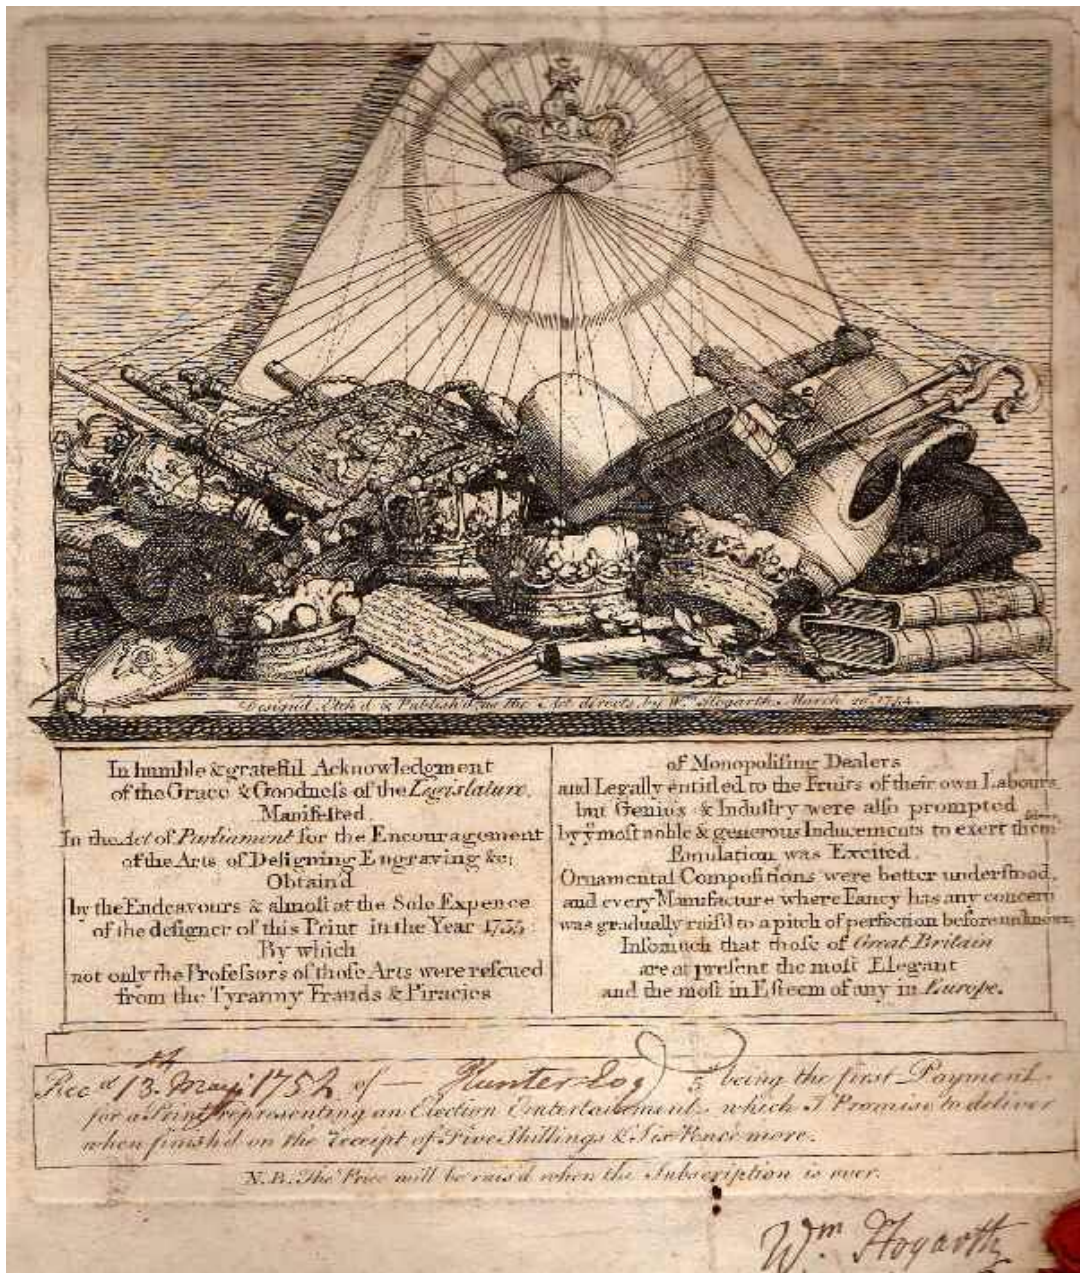 Design'd Etch'd & Publish'd as the Act directs, by Wm. Hogarth March 20. 1754.
In humble & grateful Acknowledgment
of the Grace & Goodneſs of the Legislature,
Manifeſted,
In the Act of Parliament for the Encouragement
of the Arts of Deſigning Engraving &c;
Obtain'd
by the Endeavours & almoſt at the Sole Expence
of the deſigner of this Print in the Year 1735
By which
not only the Profeſsors of thoſe Arts were reſcued
from the Tyranny Frauds & Piracies
of Monopoliſing Dealers
and Legally entitled to the Fruits of their own Labours,
but Genius & Induſtry were alſo prompted
by yͤ moſt noble & generous Inducements to exert themselves,
Emulation was Excited,
Ornamental Compoſitions were better underſtood,
and every Manufacture where Fancy has any concern
was gradually rais'd to a pitch of perfection before unknown,
Inſomuch that thoſe of Great Britain
are at preſent the moſt Elegant
and the moſt in Eſteem of any in Europe.
Rec'd 13 May 175 of — Hunter Esq 5 being the first Payment
for a Print representing an Election Entertainment, which I Promise to deliver
when finish'd on the receipt of Five Shillings & Six Pence more.
N.B. The Price will be rais'd when the Subscription is over.
Wm Hogarth